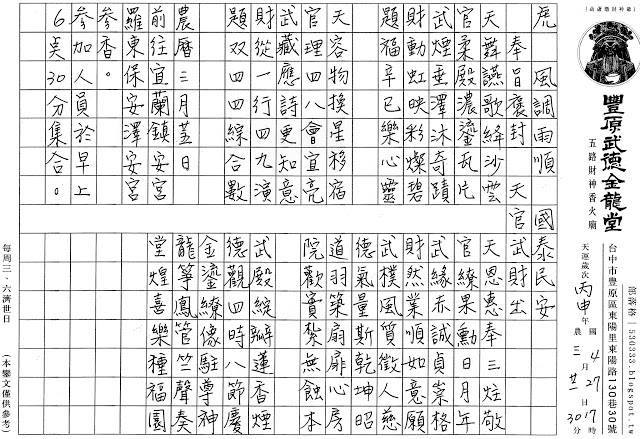 豐原武德金龍堂
五路財神香火廟
台中市豐原區東陽里東陽路130巷30號
部落格│530333.blogspot.tw
天運歲次丙申年
農 三月廿一日
國 4月27日
17時30分
虎 風調雨順 國泰民安
奉旨褒封 天官武財出
天舞讌歌絳沙雲
官柔殿濃鎏瓦片
武煙垂澤沐奇蹟
財動虹映彩燦碧
題福辛已樂心靈
天容物換星移宿
官理四八會宜亮
武藏應詩更知意
財從一行四九演
題双四四綜合數
農曆三月蓋日
前往宜蘭鎮安宮
羅東保安澤安宮
參香。
參加人員於早上
6点30分集合。
天恩惠奉三炷敬
官繚果勳日月年
武緣赤誠貞崇格
財然業順如意願
武樸風質徵人慈
德氣量斯乾坤昭
道羽築扇扉心房
院歡賓紮無蝕本
武殿綻瓣蓮香煙
德觀四時八節慶
金鎏繚像駐導神
龍箏鳳管竺聲奏
堂煌喜樂種福園
每周三、六濟世日
(本鑾文僅供參考)